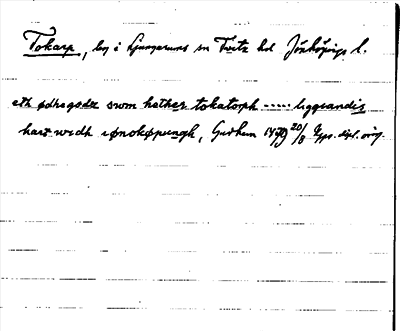 Tokarp, by i Ljungarums sn Tveta hd Jönköpings l.
eth ødhegodz som hether tokatorph ----- liggiandis
hart widh iønokøpungh, Gudhem 1479 20/8 Upps. dipl. orig.